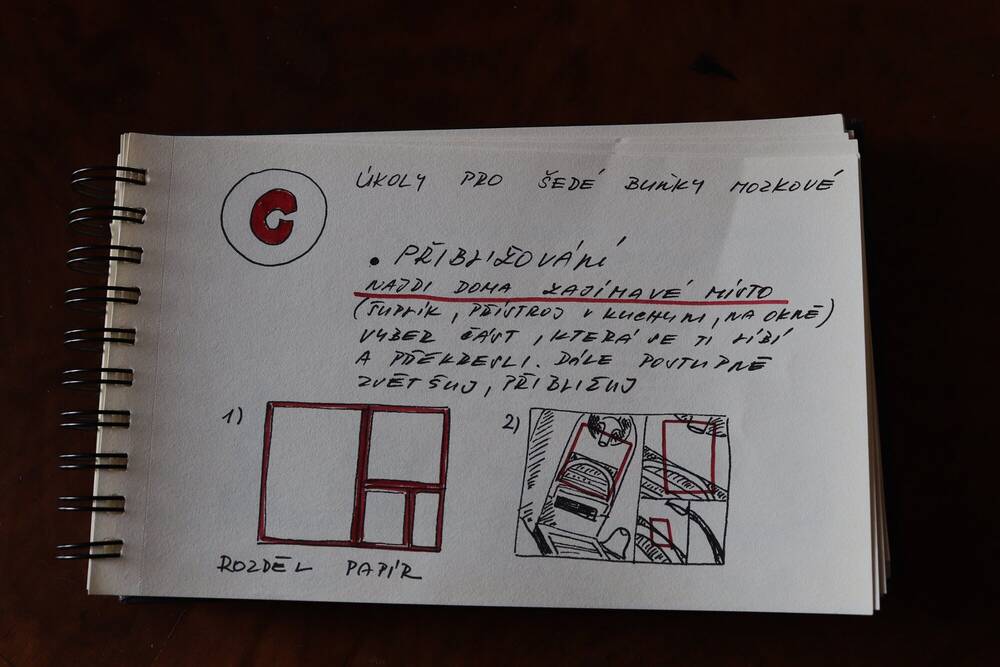 C
ÚKOLY PRO ŠEDÉ BUŇKY MOZKOVÉ
• PŘIBLIŽOVÁNÍ
NAJDI DOMA ZAJÍMAVÉ MÍSTO
(ŠUPLÍK, PŘÍSTROJ V KUCHYNI, NA OKNĚ)
VYBER ČÁST, KTERÁ SE TI LÍBÍ
A PŘEKRESLI. DÁLE POSTUPNĚ
ZVĚTŠUJ, PŘIBLIŽUJ
1)
2)
ROZDĚL PAPÍR